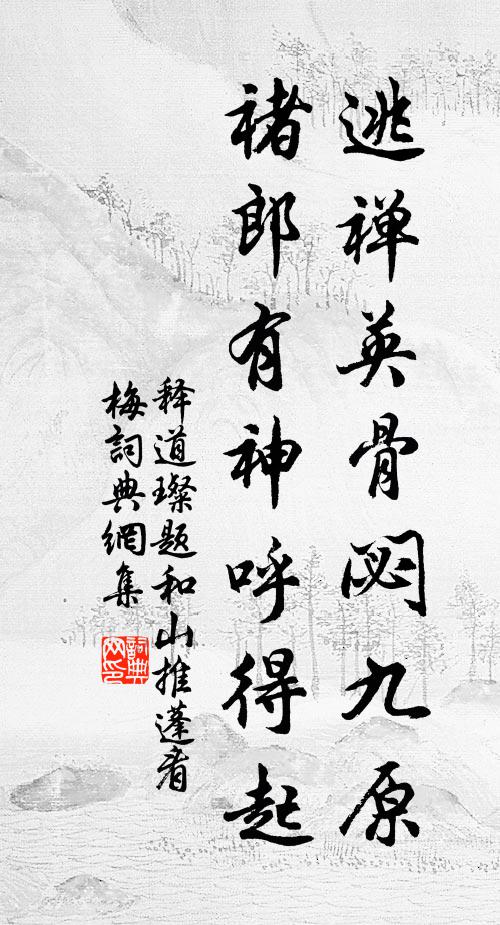 逃禅英骨閟九原
褚郎有神呼得起
释道璨题和山推蓬看
梅詞典網集
詞典网印